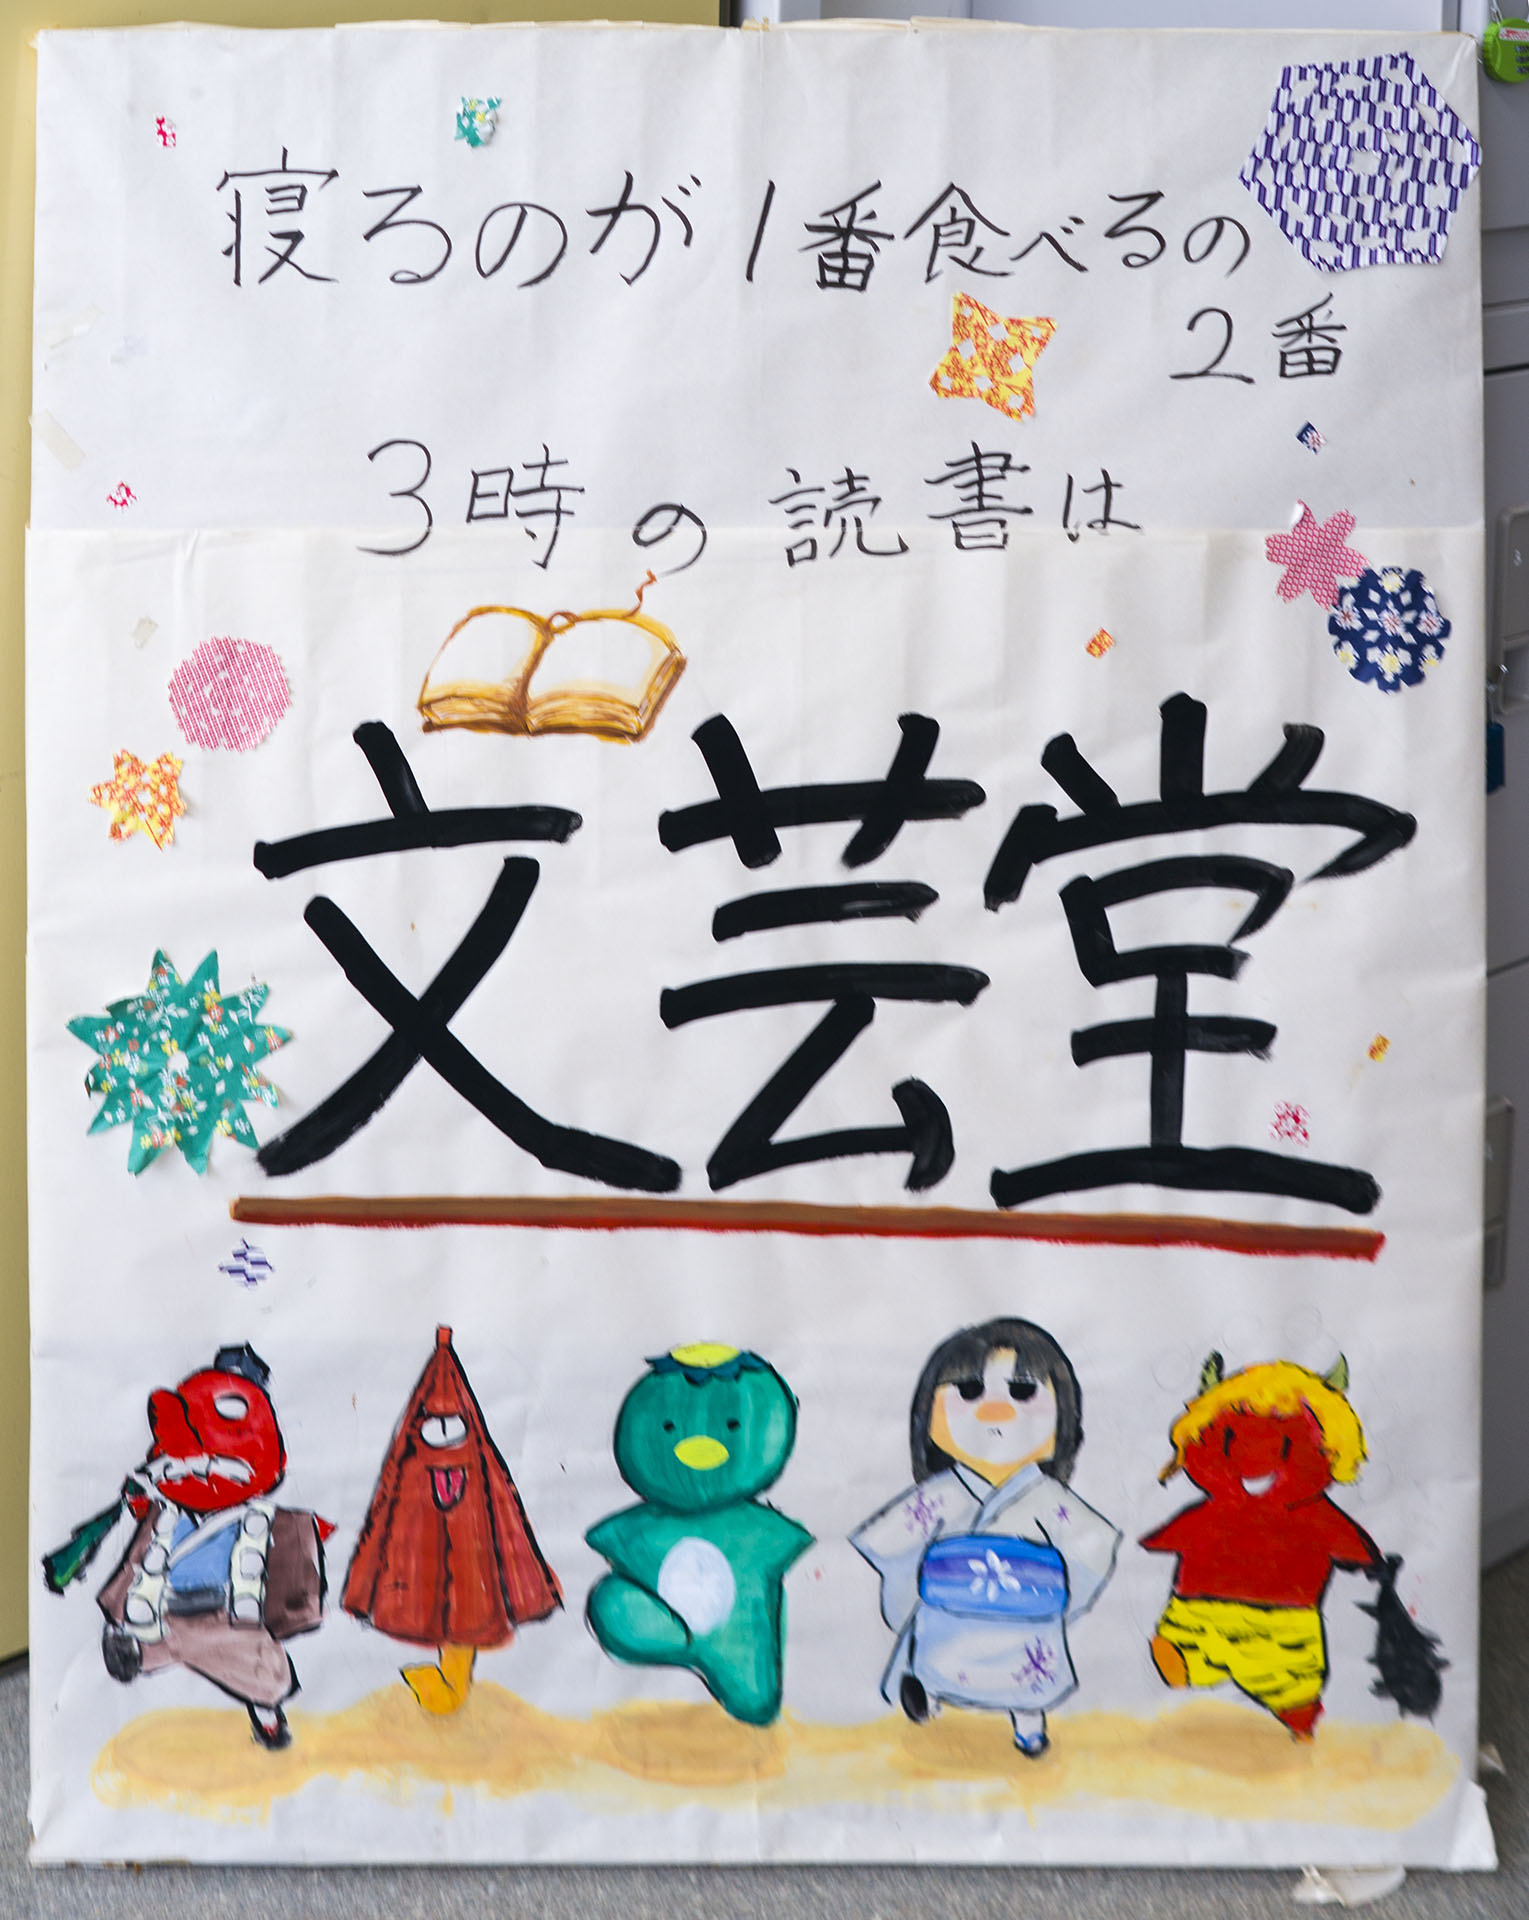 寝るのが1番食べるの
2番
3時の読書は
文芸堂